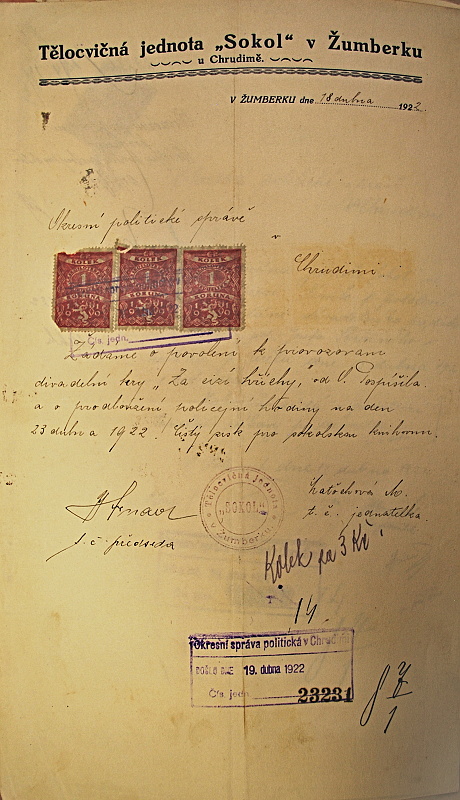 Tělocvičná jednota „Sokol“ v Žumberku
u Chrudimě.
V ŽUMBERKU dne 18 dubna 1922.
Okresní politické správě
v
Chrudimi.
KOLEK KOLEK KOLEK
1
KORUNA KORUNA KORUNA
Čís. jedn.
Žádáme o povolení k provozování
divadelní hry „Za cizí hříchy“, od O. Pospíšila
a o prodloužení policejní hodiny na den
23 dubna 1922. Čistý zisk pro sokolskou knihovnu.
Tělocvičná jednota
„SOKOL“
v Žumberku
t. č. předseda
t. č. jednatelka.
Kolek za 3 Kč
14.
Okresní správa politická v Chrudimi
DOŠLO DNE 19. dubna 1922
Čís. jedn. 23231